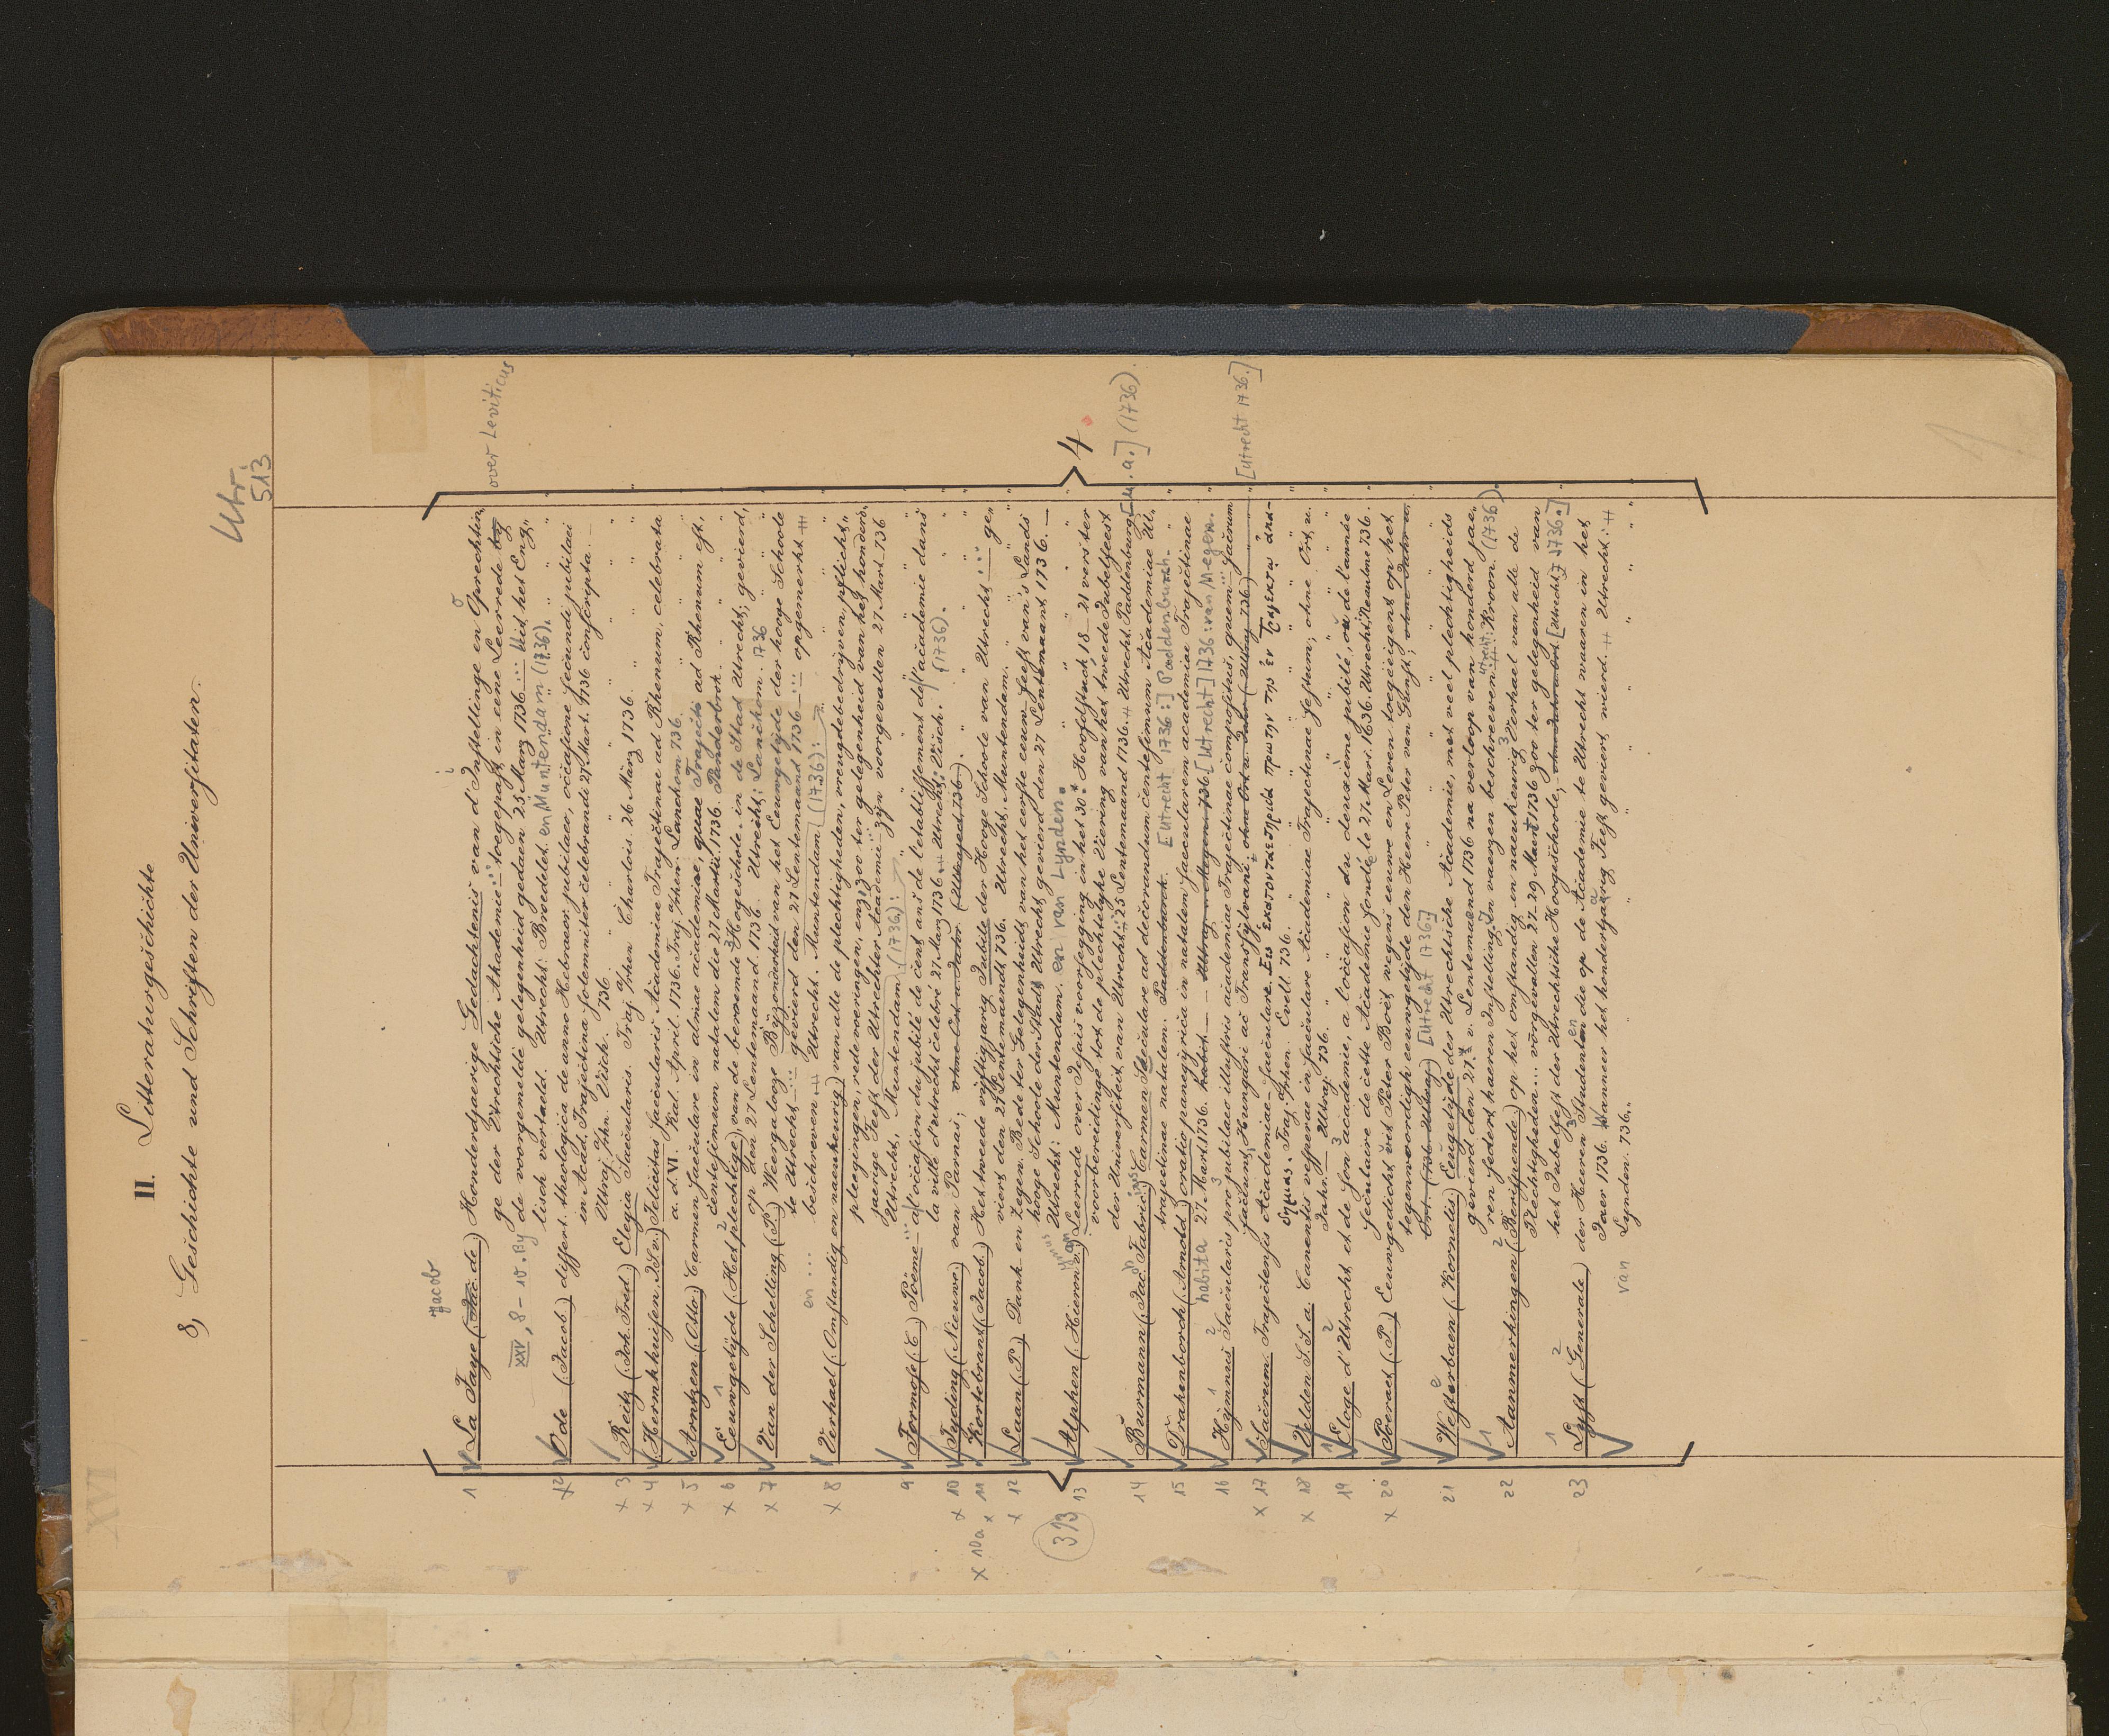 II. Litteraturgeschichte
8, Geschichte und Schriften der Universitäten.
Utr.
513
Jacob
1 La Faye (Jac. de) Honderdjaerige Gedachtenis van d'Instellinge en Oprechtin„
ge der Utrechtsche Akademie ... toegepast in eene Leerrede by
over Leviticus
XXV, 8-10. By de voorgemelde gelegenheid gedaen 25 Marz 1736 ... Uit het Eng„
lisch vertaeld. Utrecht: Broedelet en Muntendam (1736).
x 2 Ode (Jacob) dissert. theologica de anno Hebraeor. jubilaeo, occasione secundi jubilaei
in Acad. Trajectina solemniter celebrandi 27 Mart. 1736 conscripta.
Ultraj. Vhen. Visch. 736.
x 3 Reitz (Joh. Fred.) Elegia Saecularis. Traj. Rhen. Charlois. 26 März 1736.
x 4 Hernkhuisen, J. S. v.) Felicitas saecularis Academiae Trajectinae ad Rhenum, celebrata
a. d. VI. Kal. April. 1736. Traj. Rhen. Lanckom 736.
x 5 Arntzen (Otto) Carmen saeculare in almae academiae, quae Trajecti ad Rhenum est,
centesimum natalem die 27 Martii. 1736. Pandenbrok.
x 6 Eeuwgetijde (Het plechtige) van de beroemde Hogeschole, in de Stad Utrecht, gevierd,
op den 27 Lentemaand. 1736. Utrecht: Lanckom. 1736
x 7 Van der Schelling (P.) Weergalooze Byzonderheid van het Eeuwgetijde der hooge Schoole
te Utrecht ... gevierd den 27 Lentemaand 1736 ... opgemerkt #
en ... beschreven # Utrecht. Muntendam (1736).
x 8 Verhael (Omstandig en naeukeurig) van alle de plechtigheden, vreugdebedrijven, plicht„
pleegingen, redevoeringen, enz., zoo ter gelegenheid van het honderd„
jaerige Feest der Utrechter Academie zijn voorgevallen 27 Mart 736
Utrecht, Muntendam (1736).
9 Formose (C) Poëme ... à l'occasion du jubilé de cent ans de l'etablissement de l'academie dans
la ville d'utrecht celebré 27 Marz 1736. # Utrecht: Visch. (1736).
x 10 Tyding (Nieuwe) van Parnas; ohne Ort u. Jahr. (Ultraject 736)
x 10a x 11 Kortebrant (Jacob) Het tweede vijftigjarig Jubilé der Hooge Schoole van Utrecht ... ge„
viert den 27 Lentemaendt 736. Utrecht, Muntendam.
x 12 Laan (P.) Dank en Zegen. Bede ter Gelegenheidt van het eerste eeuw-feest van 's Lands
hooge Schoole der Stadt Utrecht, gevierd den 27 Lentemaant 1736.
Utrecht: Muntendam. en van Lynden.
313
13 Alphen (Hieron. v.) Leerrede over Jesais voorsegging in het 30.t Hoofdstuck, 18-21 verster
voorbereidinge tot de plechtelyke Viering van het tweede Jubelfeest
der Universiteit van Utrecht; 25 Lentemaand 1736. # Utrecht. Paddenburg [u. a.] (1736).
14 Burmann (Jac. Fabric.) Carmen Seculare ad decorandum centesimum Academiae Ul„
trajectinae natalem. Paddenburch. [Utrecht 1736:] Paddenburch.
15 Drakenborch (Arnold) oratio panegyrica in natalem saecularem academiae Trajectinae
habita 27 Mart. 1736. habit. — Ultraj. v. Megen 1736. [Utrecht] 1736: van Megen.
16 Hymnus Saecularis pro jubilaeo illustris academiae Trajectinae compositus, quem ... sacrum
faciunt, Hungari ac Transsylvani; ohne Ort u. Jahr (Ultraj. 736) [Utrecht 1736.]
x 17 Sacrum Trajectensis Academiae saeculare. Εις ἑκατονταετηρίδα πρωτην της ἐν Τραjεκτω ακα-
δημιας. Traj. Rhen. Evell. 736.
x 18 Velden S. S. a. Canentis vesperae in saeculare Academiae Trajectinae festum; ohne Ort u.
Jahr. Ultraj. 736.
19 Eloge d'Utrecht et de son academie, a l'occasion du deuxième jubilé, ou de l'année
seculaire de cette Academie fondé le 27 Mart. 1636. Utrecht, Neaulme 736.
x 20 Poeraet (P.) Eeuwgedicht uit Peter Boët wegens eeuwe en Leven toegeëigent op het
tegenwoordigh eeuwgetijde den Heere Peter van Gunst; ohne Jahr u.
Ort. (736 Ultraj.) [Utrecht 1736]
21 Westerbaen (Kornelis) Eeugetijde der Utrechtsche Academie, met veel plechtigheids
gevierd den 27.t v. Lentemaend 1736 na verloop van honderd jae„
ren sedert haeren Instelling. In vaerzen beschreeven: Utrecht: Kroon. (1736).
22 Aanmerkingen (Berispende) op het omstandig en naeukeurig Verhael van alle de
Plechtigheden ... voorgevallen 27-29 Maert 1736 zoo ter gelegenheid van
het Jubelfest der Utrechtsche Hoogeschoole, ohne Jahr u. Ort. [Utrecht 1736.]
23 Lyst (Generale) der Heeren Studenten die op de Academie te Utrecht waaren in het
Jaer 1736. Wanneer het hondertjaarig Feest geviert wierd. # Utrecht: #
van Lynden. 736.
4.